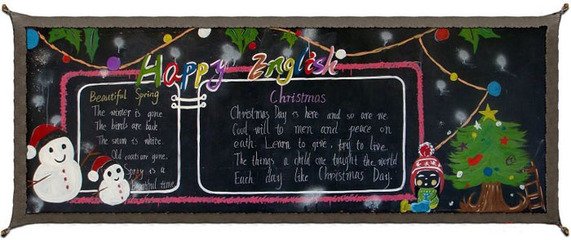 Happy English
Beautiful Spring
The winter is gone
The birds are back
The swim is white.
Old coats are gone.
is a
beautiful time
Christmas
Christmas Day is here and so are we
Good will to men and peace on
earth. Learn to give, try to live.
The things a child one tought the world
Each day like Christmas Day.